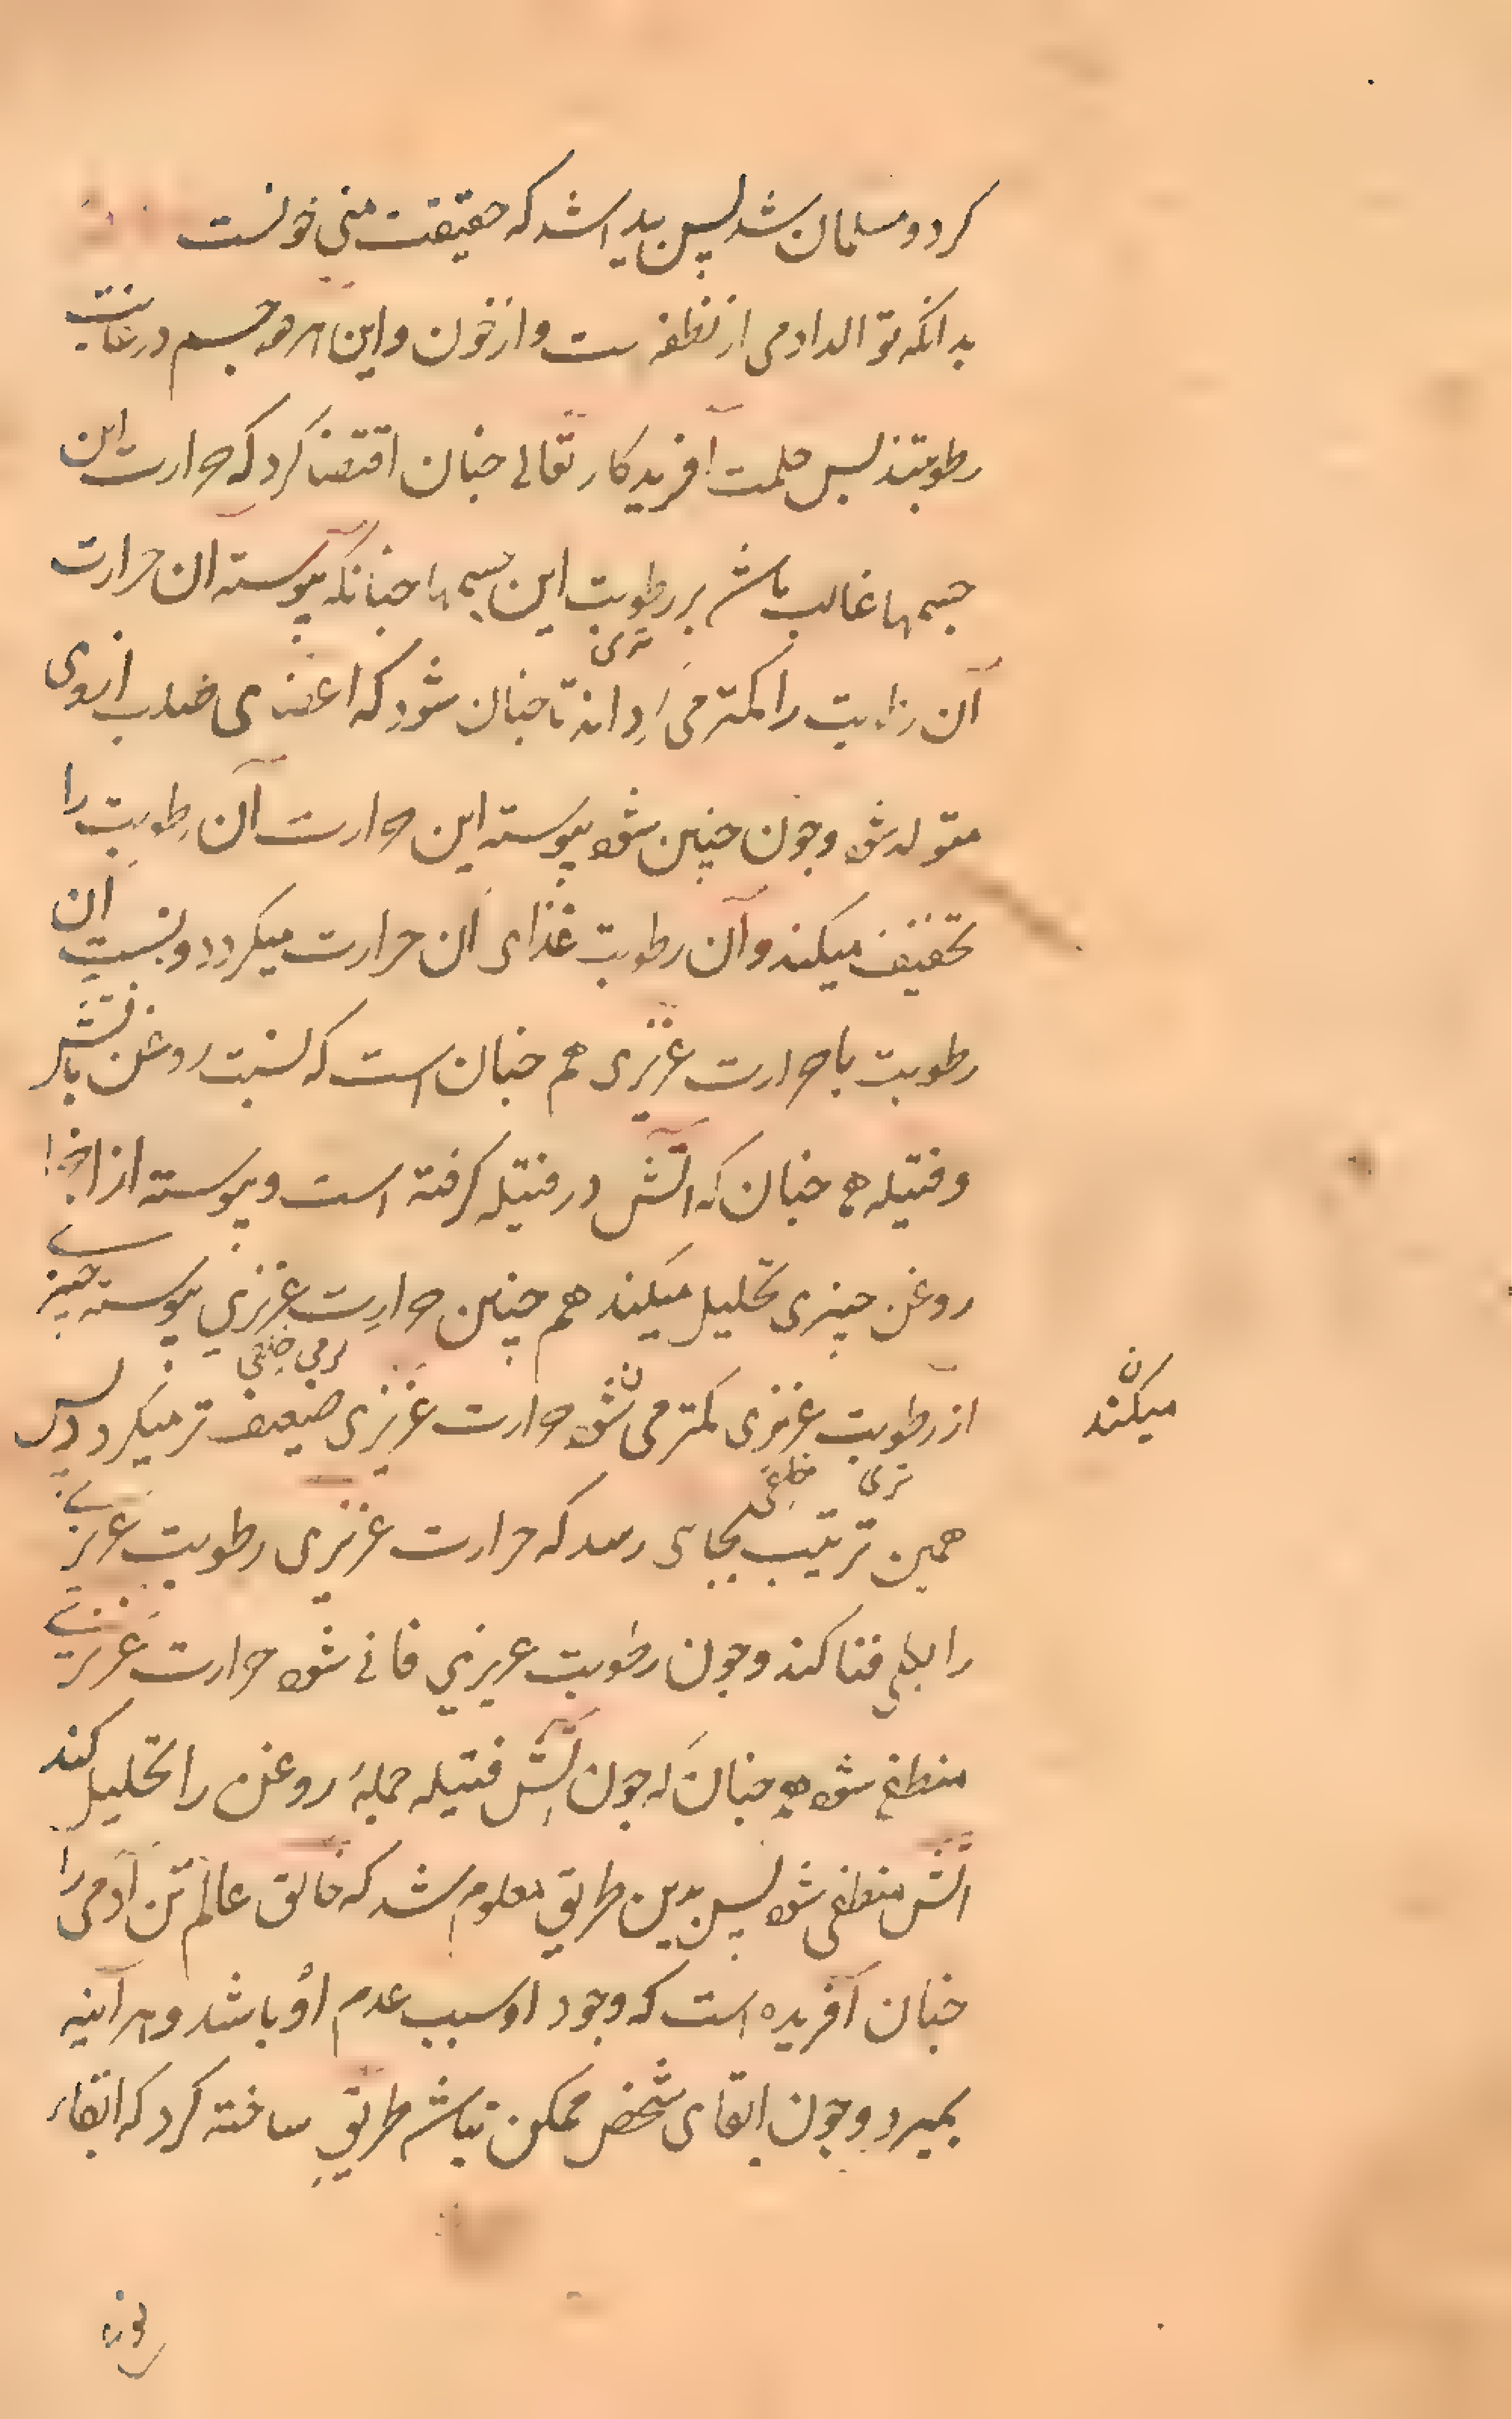 کرد و مسلمان شد پس پیدا شد که حقیقت منی خونست
بدانکه توالد ادمی از نطفه ست و از خون و این هر دو جسم در غایت
رطوبتند پس حکمت آفریدکار تعالی چنان اقتضا کرد که حرارت این
جسمها غالب باشد بر رطوبت این جسمها چنانکه پیوسته آن حرارت
تری
آن رطوبت را کمتر می تا چنان شود که اعضای صلب ازوی
متولد شود و چون چنین شود پیوسته این حرارت آن رطوبت را
تخفیف میکند و آن رطوبت غذای آن حرارت میکردد و نسبت آن
رطوبت با حرارت غریزی هم چنان است که نسبت روغن با آتش
و فتیله هم چنان که آتش در فتیله کرفته است و پیوسته از اجزا
روغن چیزی تحلیل میکند هم چنین حرارت غریزی پیوسته چیزی
کرمی خلقی
از رطوبت غریزی کمتر می شود حرارت غریزی ضعیف تر میکردد پس
میکند
تری خلقی
همین ترتیب بجای رسد که حرارت غریزی رطوبت غریزی
را بکلی فنا کند و چون رطوبت غریزی فانی شود حرارت غریزی
منطفی شود هم چنان که چون آتش فتیله جمله روغن را تحلیل کند
آتش منطفی شود پس بدین طریق معلوم شد که خالق عالم تن آدمی را
چنان آفریده است که وجود او سبب عدم او باشد و هر آینه
بمیرد و چون ابقای شخص ممکن نباشد طریق ساخته کرد که ابقاء